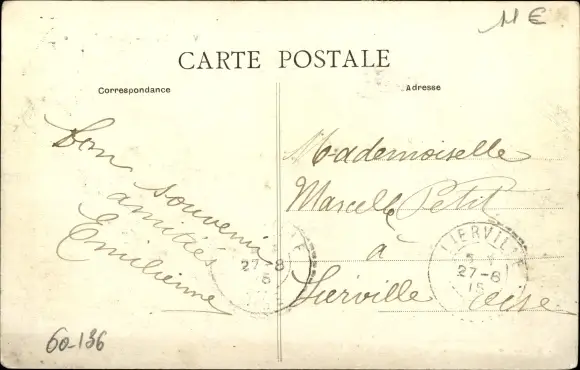 11 €
CARTE POSTALE
Correspondance
Adresse
Bon souvenir
amitiés
Emilienne
Mademoiselle
Marcelle Petit
à
Lierville Oise
27-8
15
LIERVILLE
27-8
15
60-136